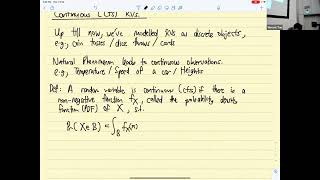 Continuous (cts) RVs.
Up till now, we've modelled RVs as discrete objects,
e.g., coin tosses / dice throws / cards
Natural Phenomenon leads to continuous observations.
e.g., Temperature / Speed of a car / Heights
Def: A random variable is continuous (cts) if there is
a non-negative function fX, called the probability density
function (PDF) of X, s.t.
P(X ∈ B) = ∫B fX(x)